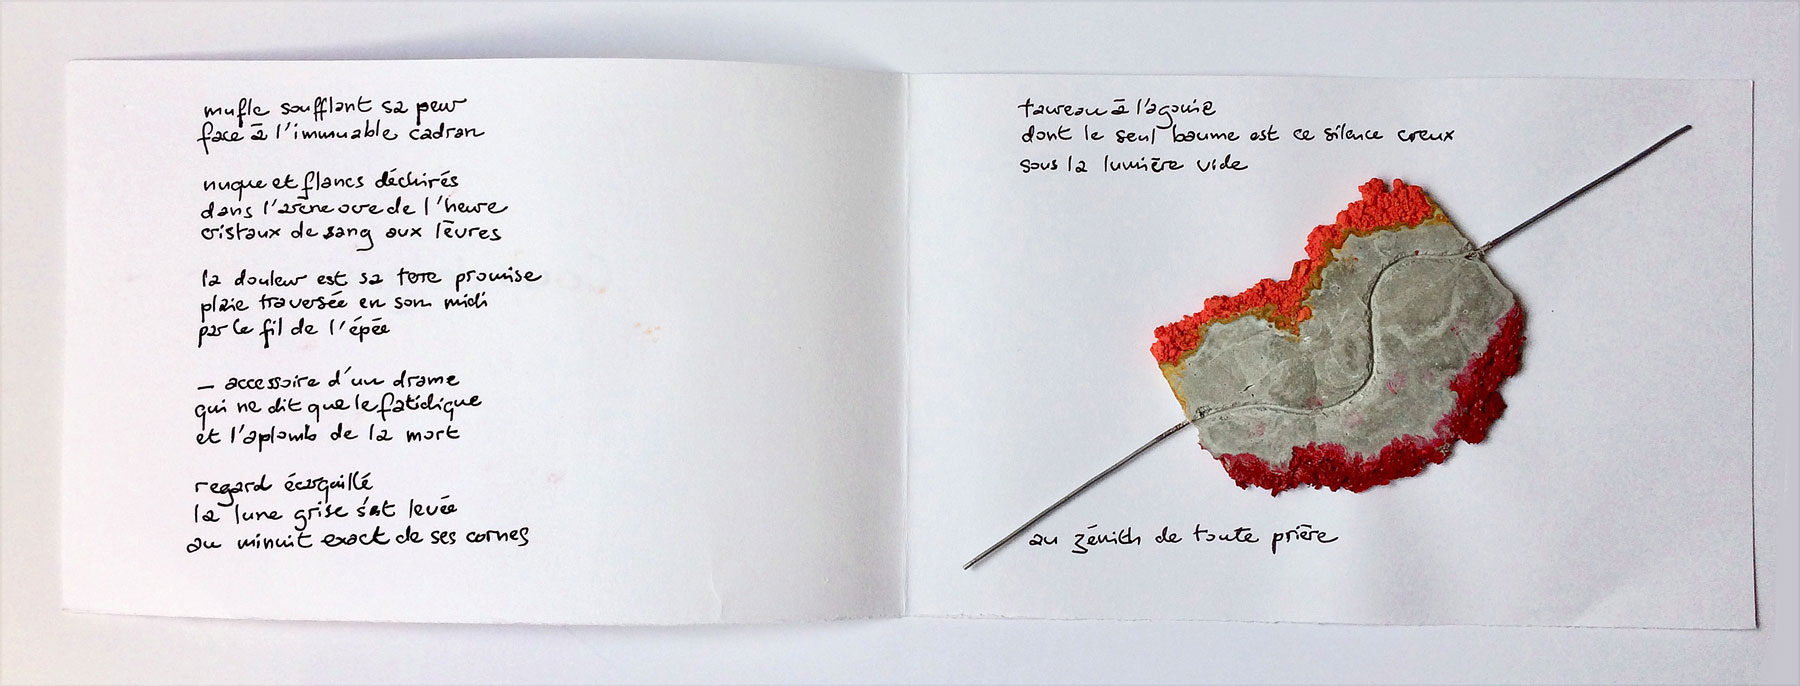 mufle soufflant sa peur
face à l'immuable cadran
nuque et flancs déchirés
dans l'arène ocre de l'heure
cristaux de sang aux lèvres
la douleur est sa terre promise
plaie traversée en son midi
par le fil de l'épée
– accessoire d'un drame
qui ne dit que le fatidique
et l'aplomb de la mort
regard écarquillé
la lune grise s'est levée
au minuit exact de ses cornes
taureau à l'agonie
dont le seul baume est ce silence creux
sous la lumière vide
au zénith de toute prière